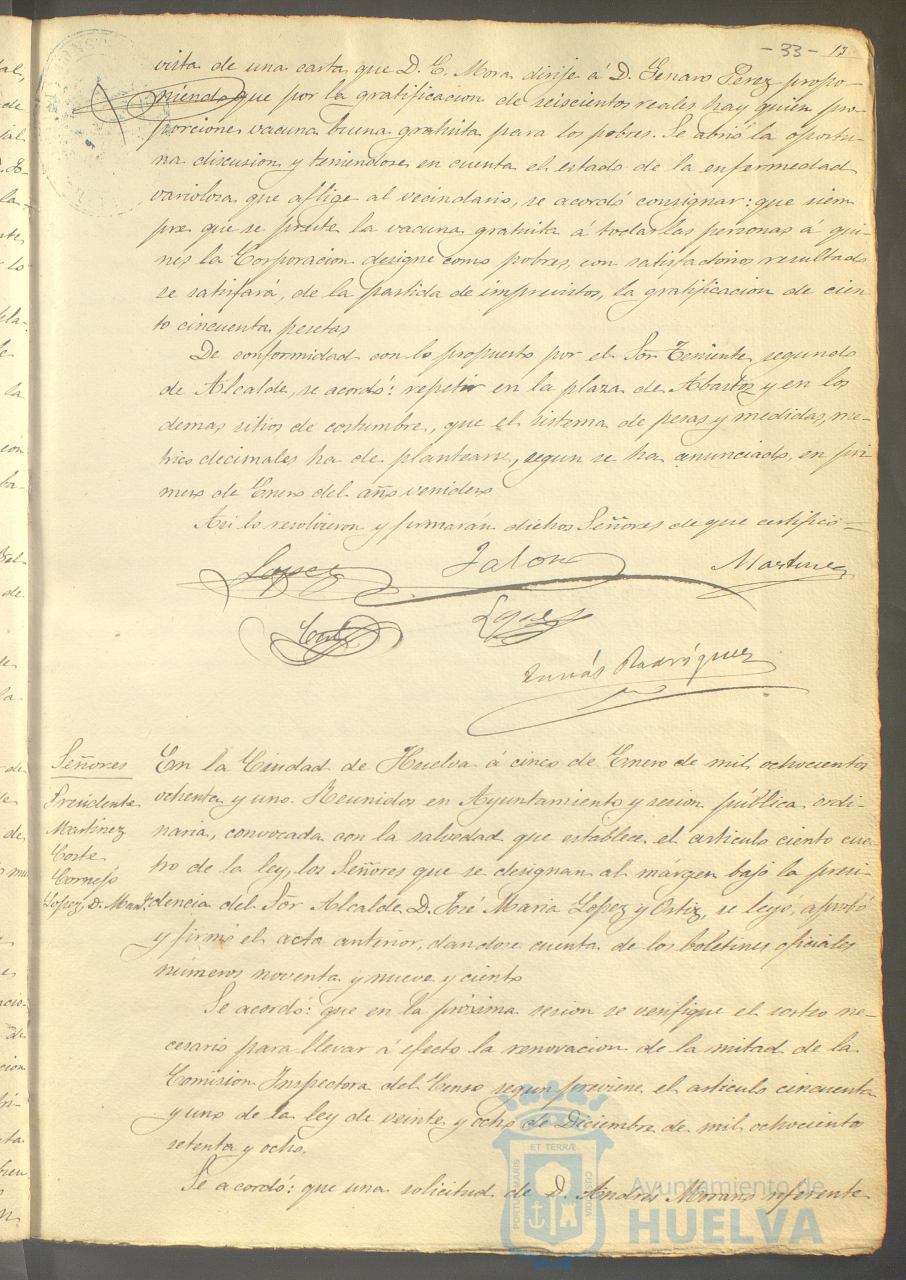 - 33 - 13
vista de una carta que D. E. Mora dirije á D. Genaro Perez propo-
niendo que por la gratificacion de seiscientos reales hay quien pro-
porcione vacuna buena gratuita para los pobres. Se abrió la oportu-
na discusion y teniendose en cuenta el estado de la enfermedad
variolosa que aflige al vecindario, se acordó consignar: que siem
pre que se preste la vacuna gratuita á todas las personas á qui-
nes la Corporacion designe como pobres, con satisfactorios resultados
se satisfará, de la partida de imprevistos, la gratificacion de cien-
to cincuenta pesetas
De conformidad con lo propuesto por el Sor Teniente segundo
de Alcalde, se acordó: repetir en la plaza de Abastos y en los
demas sitios de costumbre, que el sistema de pesas y medidas, me-
trico decimales ha de plantearse, segun se ha anunciado, en pri
mero de Enero del año venidero
Asi lo resolvieron y firmarán dichos Señores de que certifico =
Lopez Jalon Martinez
Corte Lopez
Tomás Rodríguez
Señores
Presidente
Martinez
Corte
Cornejo
Lopez, D. Manl.
En la Ciudad de Huelva á cinco de Enero de mil ochocientos
ochenta y uno. Reunidos en Ayuntamiento y sesion pública ordi-
naria, convocada con la salvedad que establece el articulo ciento cua-
tro de la ley, los Señores que se designan al márgen bajo la presi-
dencia del Sor Alcalde D. José Maria Lopez y Ortiz, se leyó, aprobó
y firmó el acta anterior, dandose cuenta de los boletines oficiales
números noventa y nueve y ciento
Se acordó: que en la próxima sesion se verifique el sorteo ne-
cesario para llevar á efecto la renovacion de la mitad de la
Comision Inspectora del Censo segun previene el articulo cincuenta
y uno de la ley de veinte y ocho de Diciembre de mil ochociento
setenta y ocho.
Se acordó: que una solicitud de D. Andres Morano referente
PORTUS MARIS ET TERRÆ CUSTODIA
Ayuntamiento de
HUELVA